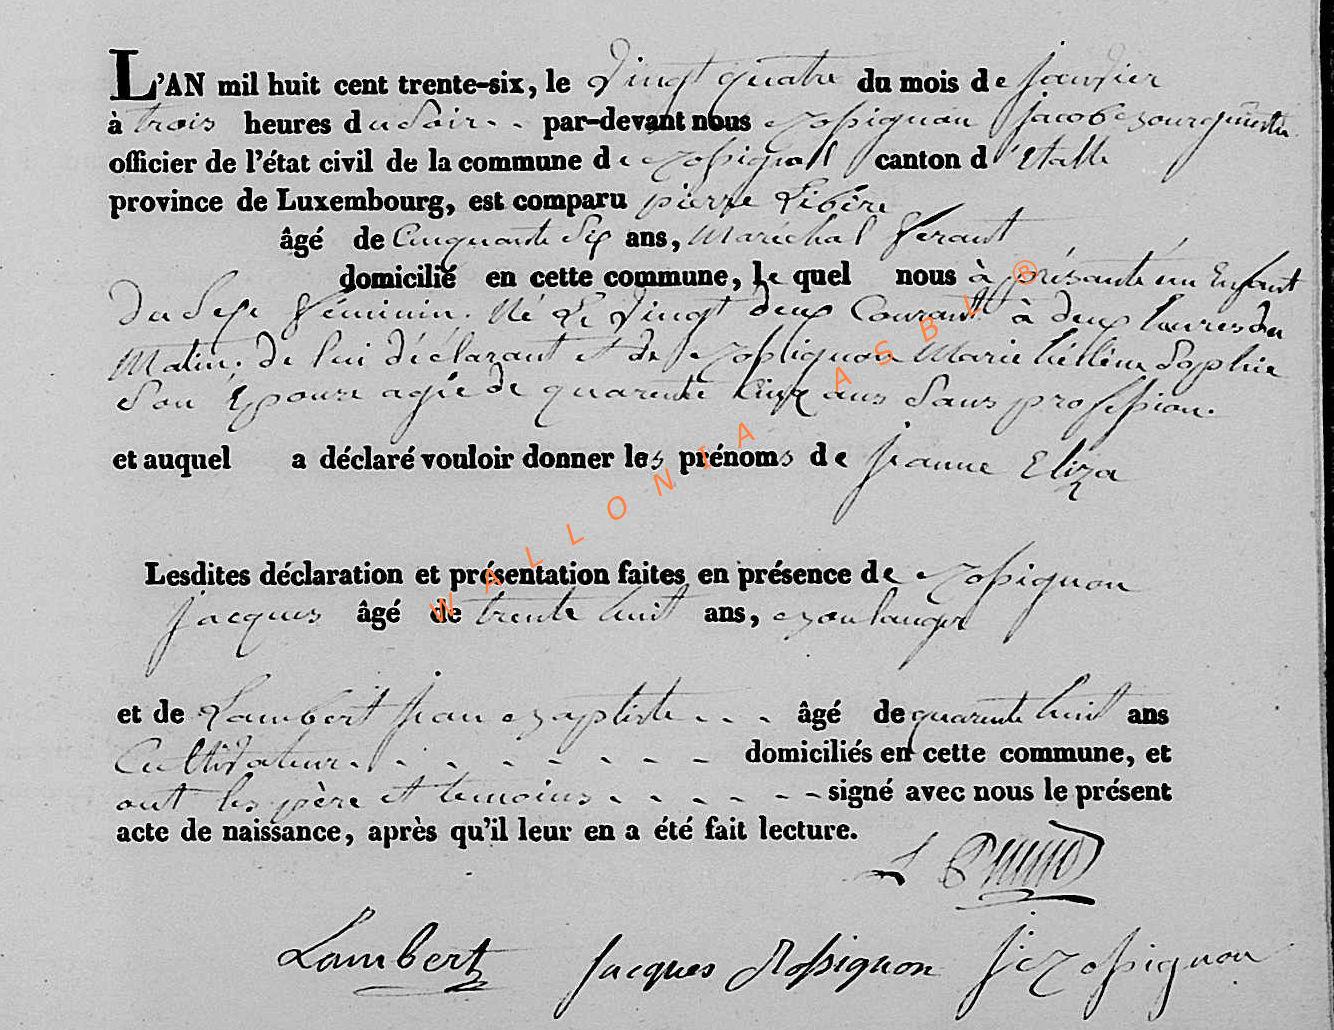 L'AN mil huit cent trente-six, le vingt quatre du mois de janvier
à trois heures du Soir - - par-devant nous Rossignon Jacob
officier de l'état civil de la commune de Rossignol canton d'Etalle
province de Luxembourg, est comparu pierre
âgé de Cinquante Six ans, Maréchal ferant
domicilié en cette commune, le quel nous à présenté un Enfant
du Sexe féminin. Né Le vingt deux Courant à deux heures du
Matin. de lui déclarant et de Rossignon Marie hélène Sophie
Son Epouse agée de quarente Cinq ans Sans profession.
et auquel a déclaré vouloir donner les prénoms de jeanne Eliza
Lesdites déclaration et présentation faites en présence de Rossignon
jacques âgé de trente huit ans, Boulanger
et de Lambert jean Baptiste - - - âgé de quarente huit ans
Cultivateur - - - - - - - - - domiciliés en cette commune, et
ont les père et temoins - - - - - - signé avec nous le présent
acte de naissance, après qu'il leur en a été fait lecture.
Lambert Jacques Rossignon J Rossignon
WALLONIA ASBL ®